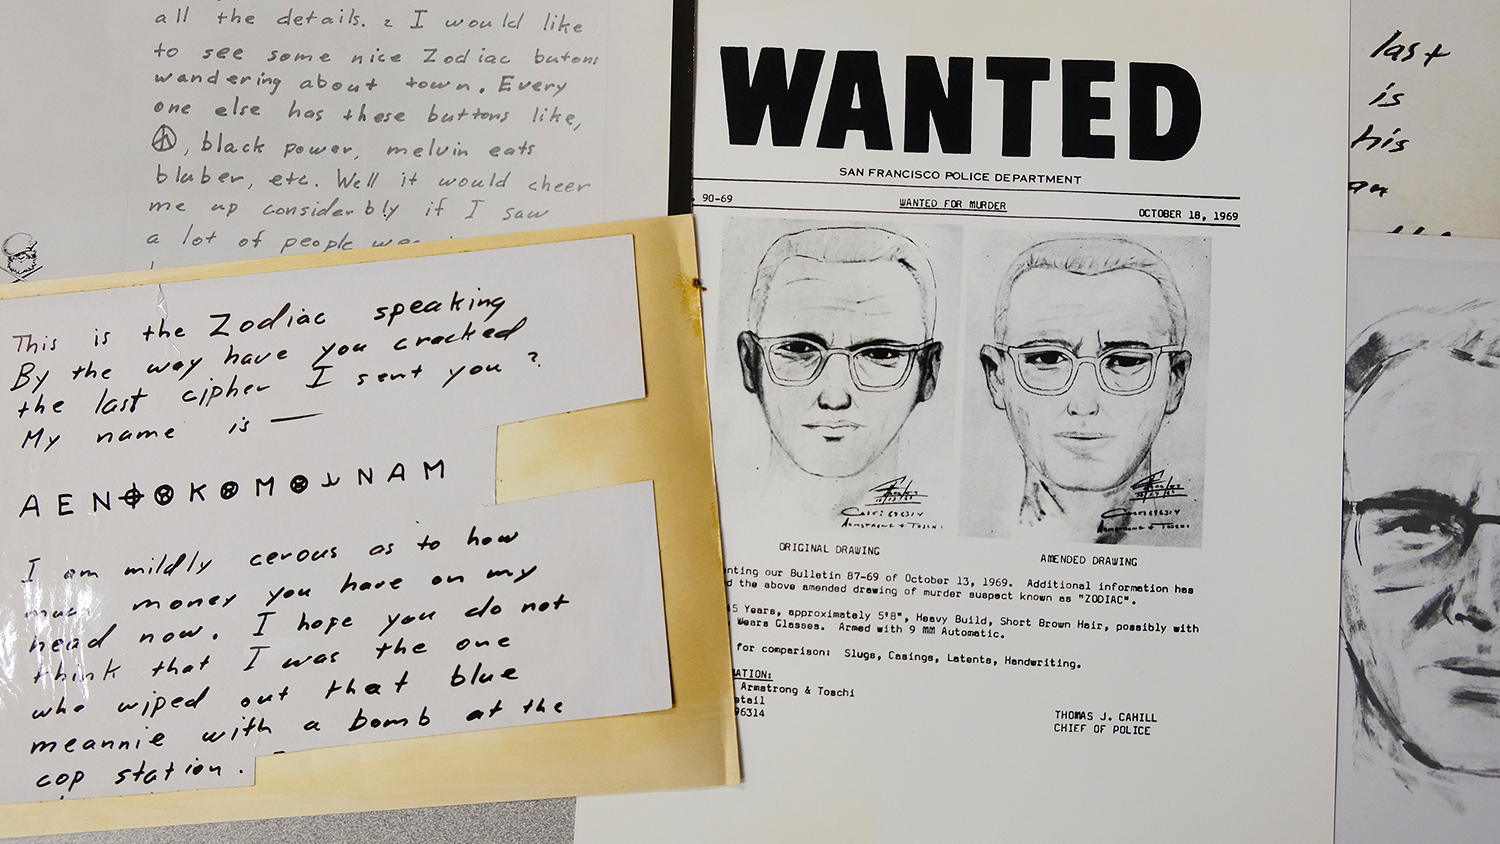 all the details. 2 I would like
to see some nice Zodiac butons
wandering about town. Every
one else has these buttons like,
, black power, melvin eats
bluber, etc. Well it would cheer
me up considerbly if I saw
a lot of people
This is the Zodiac speaking
By the way have you cracked
the last cipher I sent you ?
My name is —
A E N ⌖ ⊗ K ⊗ M ⊗ N A M
I am mildly cerous as to how
much money you have on my
head now. I hope you do not
think that I was the one
who wiped out that blue
meannie with a bomb at the
cop station.
WANTED
SAN FRANCISCO POLICE DEPARTMENT
90-69 WANTED FOR MURDER OCTOBER 18, 1969
ORIGINAL DRAWING AMENDED DRAWING
nting our Bulletin 87-69 of October 13, 1969. Additional information has
d the above amended drawing of murder suspect known as "ZODIAC".
5 Years, approximately 5'8", Heavy Build, Short Brown Hair, possibly with
Wears Glasses. Armed with 9 MM Automatic.
for comparison: Slugs, Casings, Latents, Handwriting.
ATION:
Armstrong & Toschi
etail
96314
THOMAS J. CAHILL
CHIEF OF POLICE
last
is
his
an